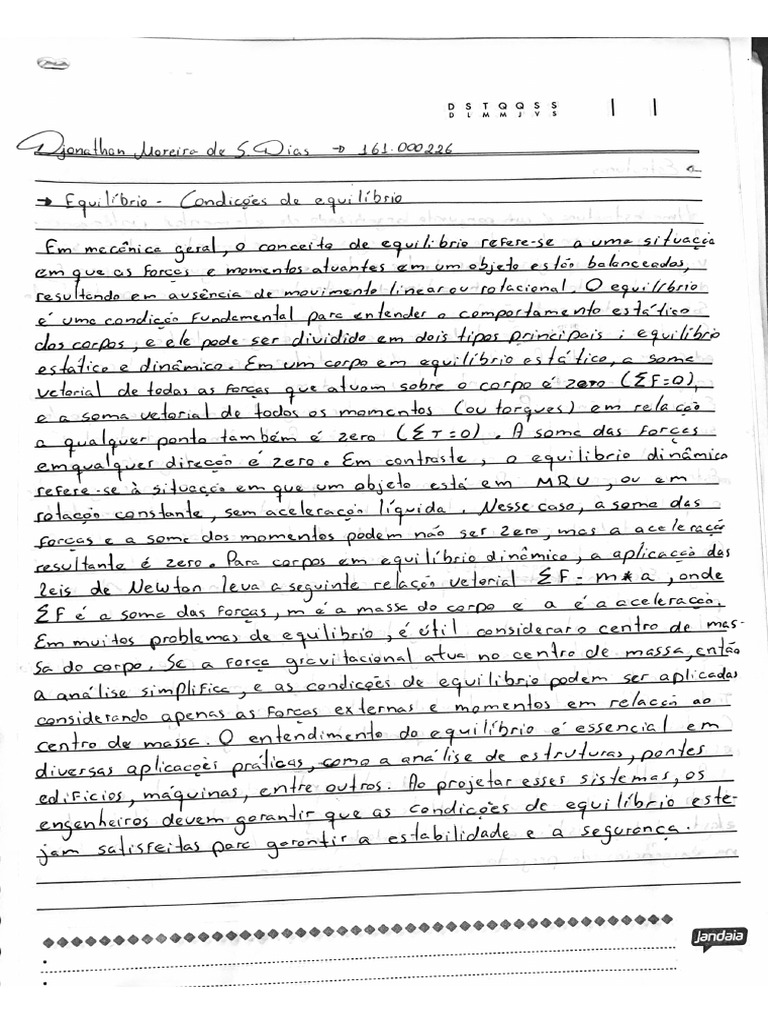 D S T Q Q S S
D L M M J V S
Djonathan Moreira de S. Dias → 161.000226
→ Equilíbrio - Condições de equilíbrio
Em mecânica geral, o conceito de equilibrio refere-se a uma situação
em que as forças e momentos atuantes em um objeto estão balanceados,
resultando em ausência de movimento linear ou rotacional. O equilíbrio
é uma condição fundamental para entender o comportamento estático
dos corpos, e ele pode ser dividido em dois tipos principais: equilíbrio
estático e dinâmico. Em um corpo em equilíbrio estático, a soma
vetorial de todas as forças que atuam sobre o corpo é zero (ΣF=0),
e a soma vetorial de todos os momentos (ou torques) em relação
a qualquer ponto também é zero (Στ=0). A soma das forças
em qualquer direção é zero. Em contraste, o equilibrio dinâmico
refere-se à situação em que um objeto está em MRU, ou em
rotação constante, sem aceleração líquida. Nesse caso, a soma das
forças e a soma dos momentos podem não ser zero, mas a aceleração
resultante é zero. Para corpos em equilíbrio dinâmico, a aplicação das
leis de Newton leva a seguinte relação vetorial ΣF = m*a, onde
ΣF é a soma das forças, m é a massa do corpo e a é a aceleração.
Em muitos problemas de equilibrio, é útil considerar o centro de mas-
sa do corpo. Se a força gravitacional atua no centro de massa, então
a análise simplifica, e as condições de equilibrio podem ser aplicadas
considerando apenas as forças externas e momentos em relação ao
centro de massa. O entendimento do equilíbrio é essencial em
diversas aplicações práticas, como a análise de estruturas, pontes
edifícios, máquinas, entre outros. Ao projetar esses sistemas, os
engenheiros devem garantir que as condições de equilíbrio este-
jam satisfeitas para garantir a estabilidade e a segurança.
Jandaia